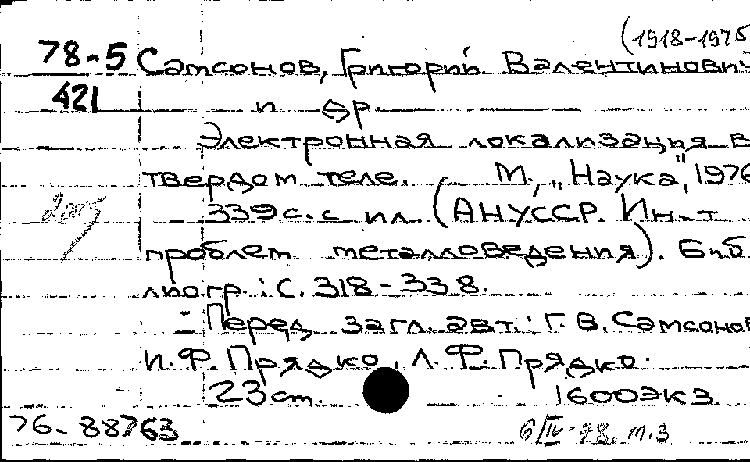 (1918-1975
78-5 Самсонов, Григорий Валентинович
421 и др
Электронная локализация в
твердом теле. М., „Наука", 1976
339 с. с ил. (АН УССР. Ин-т
проблем металловедения). Биб
лиогр.: с. 318-338.
- Перед загл. авт.: Г. В. Самсонов
И. Ф. Прядко, Л. Ф. Прядко.
23 см. 1600 экз.
76-88763 6/IV-78. м.з